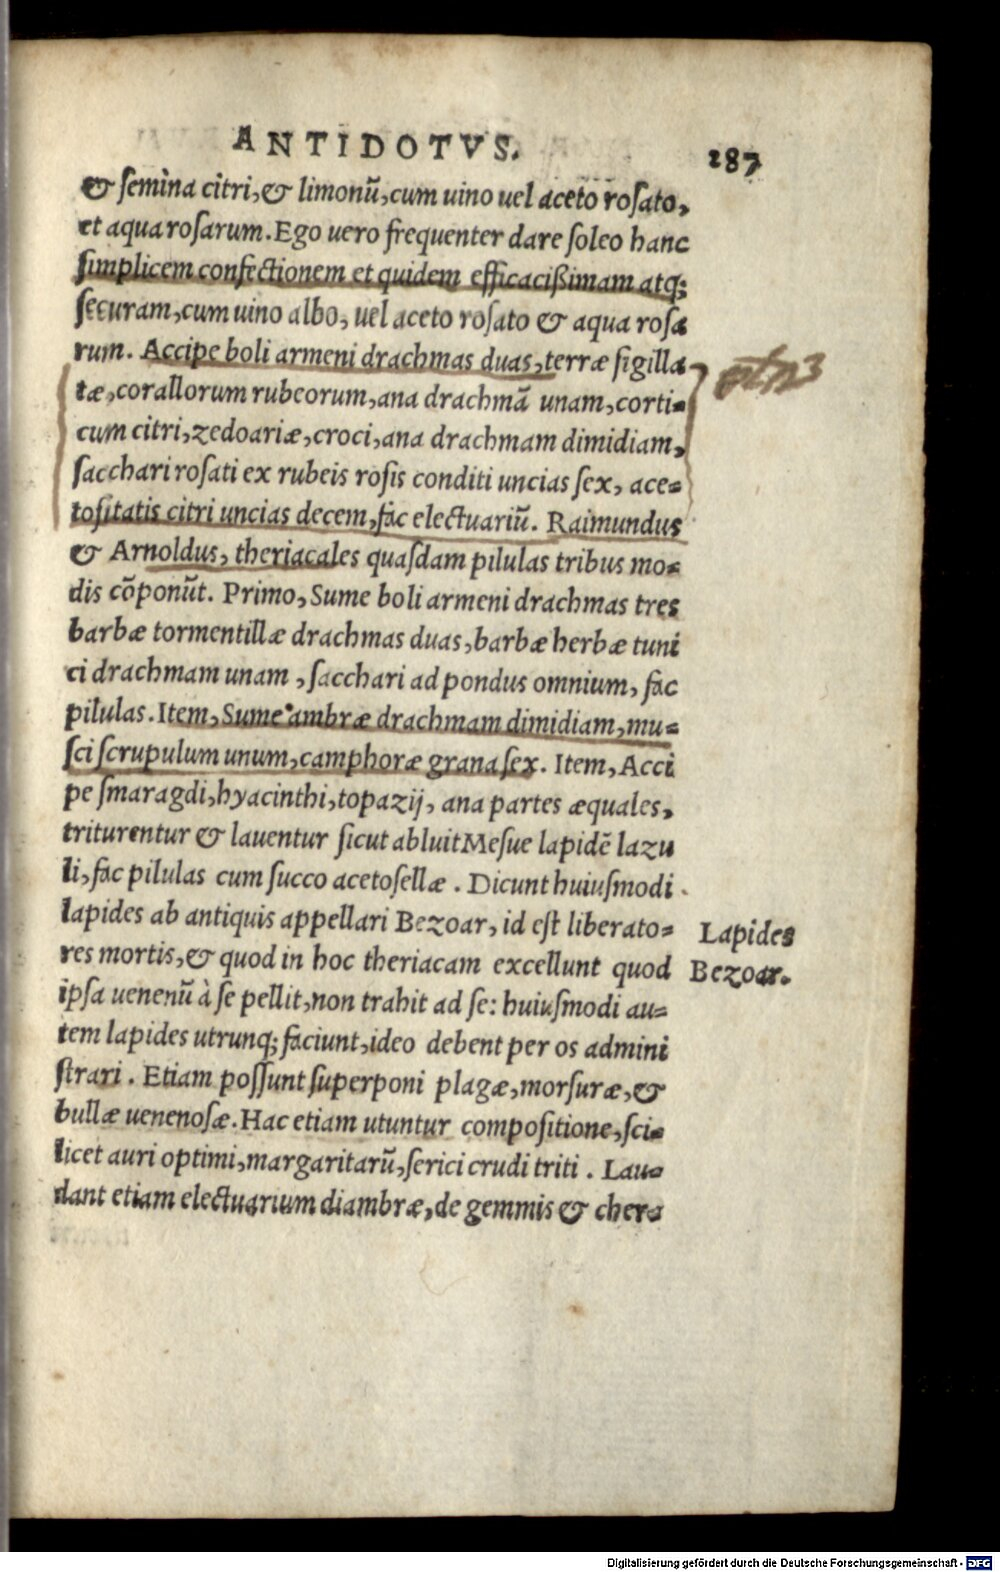 ANTIDOTVS.
287
& semina citri, & limonũ, cum uino uel aceto rosato,
et aqua rosarum. Ego uero frequenter dare soleo hanc
simplicem confectionem et quidem efficacißimam atq;
securam, cum uino albo, uel aceto rosato & aqua rosa
rum. Accipe boli armeni drachmas duas, terræ sigilla
tæ, corallorum rubeorum, ana drachmã unam, corti=
cum citri, zedoariæ, croci, ana drachmam dimidiam,
sacchari rosati ex rubeis rosis conditi uncias sex, ace=
tositatis citri uncias decem, fac electuariũ. Raimundus
& Arnoldus, theriacales quasdam pilulas tribus mo=
dis cõponũt. Primo, Sume boli armeni drachmas tres
barbæ tormentillæ drachmas duas, barbæ herbæ tuni
ci drachmam unam, sacchari ad pondus omnium, fac
pilulas. Item, Sume ambræ drachmam dimidiam, mu=
sci scrupulum unum, camphoræ grana sex. Item, Acci
pe smaragdi, hyacinthi, topazij, ana partes æquales,
triturentur & lauentur sicut abluit Mesue lapidẽ lazu
li, fac pilulas cum succo acetosellæ. Dicunt huiusmodi
lapides ab antiquis appellari Bezoar, id est liberato=
res mortis, & quod in hoc theriacam excellunt quod
ipsa uenenũ à se pellit, non trahit ad se: huiusmodi au=
tem lapides utrunq; faciunt, ideo debent per os admini
strari. Etiam possunt superponi plagæ, morsuræ, &
bullæ uenenosæ. Hac etiam utuntur compositione, sci=
licet auri optimi, margaritarũ, serici crudi triti. Lau=
dant etiam electuarium diambræ, de gemmis & cher=
Lapides
Bezoar.
Digitalisierung gefördert durch die Deutsche Forschungsgemeinschaft - DFG